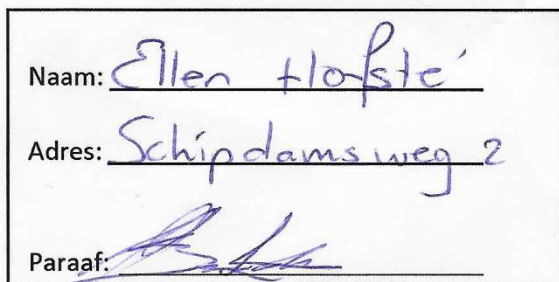 Naam: Ellen Hofsté
Adres: Schipdamsweg 2
Paraaf: